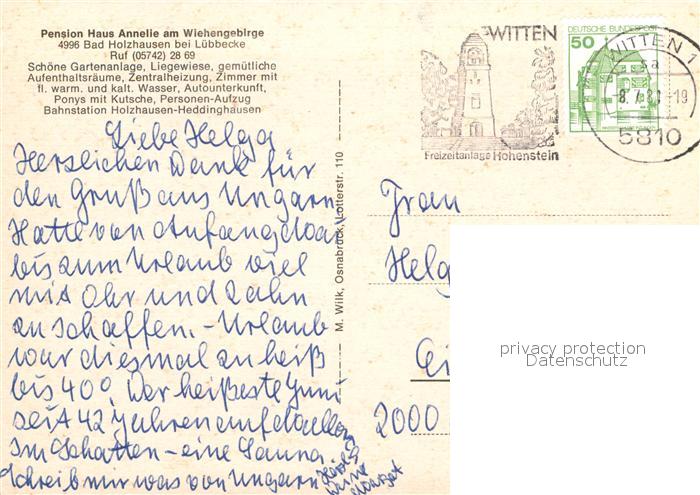 Pension Haus Annelie am Wiehengebirge
4996 Bad Holzhausen bei Lübbecke
Ruf (05742) 28 69
Schöne Gartenanlage, Liegewiese, gemütliche
Aufenthaltsräume, Zentralheizung, Zimmer mit
fl. warm. und kalt. Wasser, Autounterkunft,
Ponys mit Kutsche, Personen-Aufzug
Bahnstation Holzhausen-Heddinghausen
Liebe Helga
Herzlichen Dank für
den Gruß aus Ungarn
Hatte von Anfang
bis zum Urlaub viel
mit Ohr und Zahn
zu schaffen. - Urlaub
war diesmal zu heiß
bis 40° Der heißeste Juni
seit 42 Jahren auf
Im Schatten - eine Sauna
Schreib mir was von Ungarn
Herzl.
M. Wilk, Osnabrück, Lotterstr. 110
WITTEN
Freizeitanlage Hohenstein
DEUTSCHE BUNDESPOST
50
WITTEN 1
sa
-19
5810
Frau
Helg
2000
privacy protection
Datenschutz